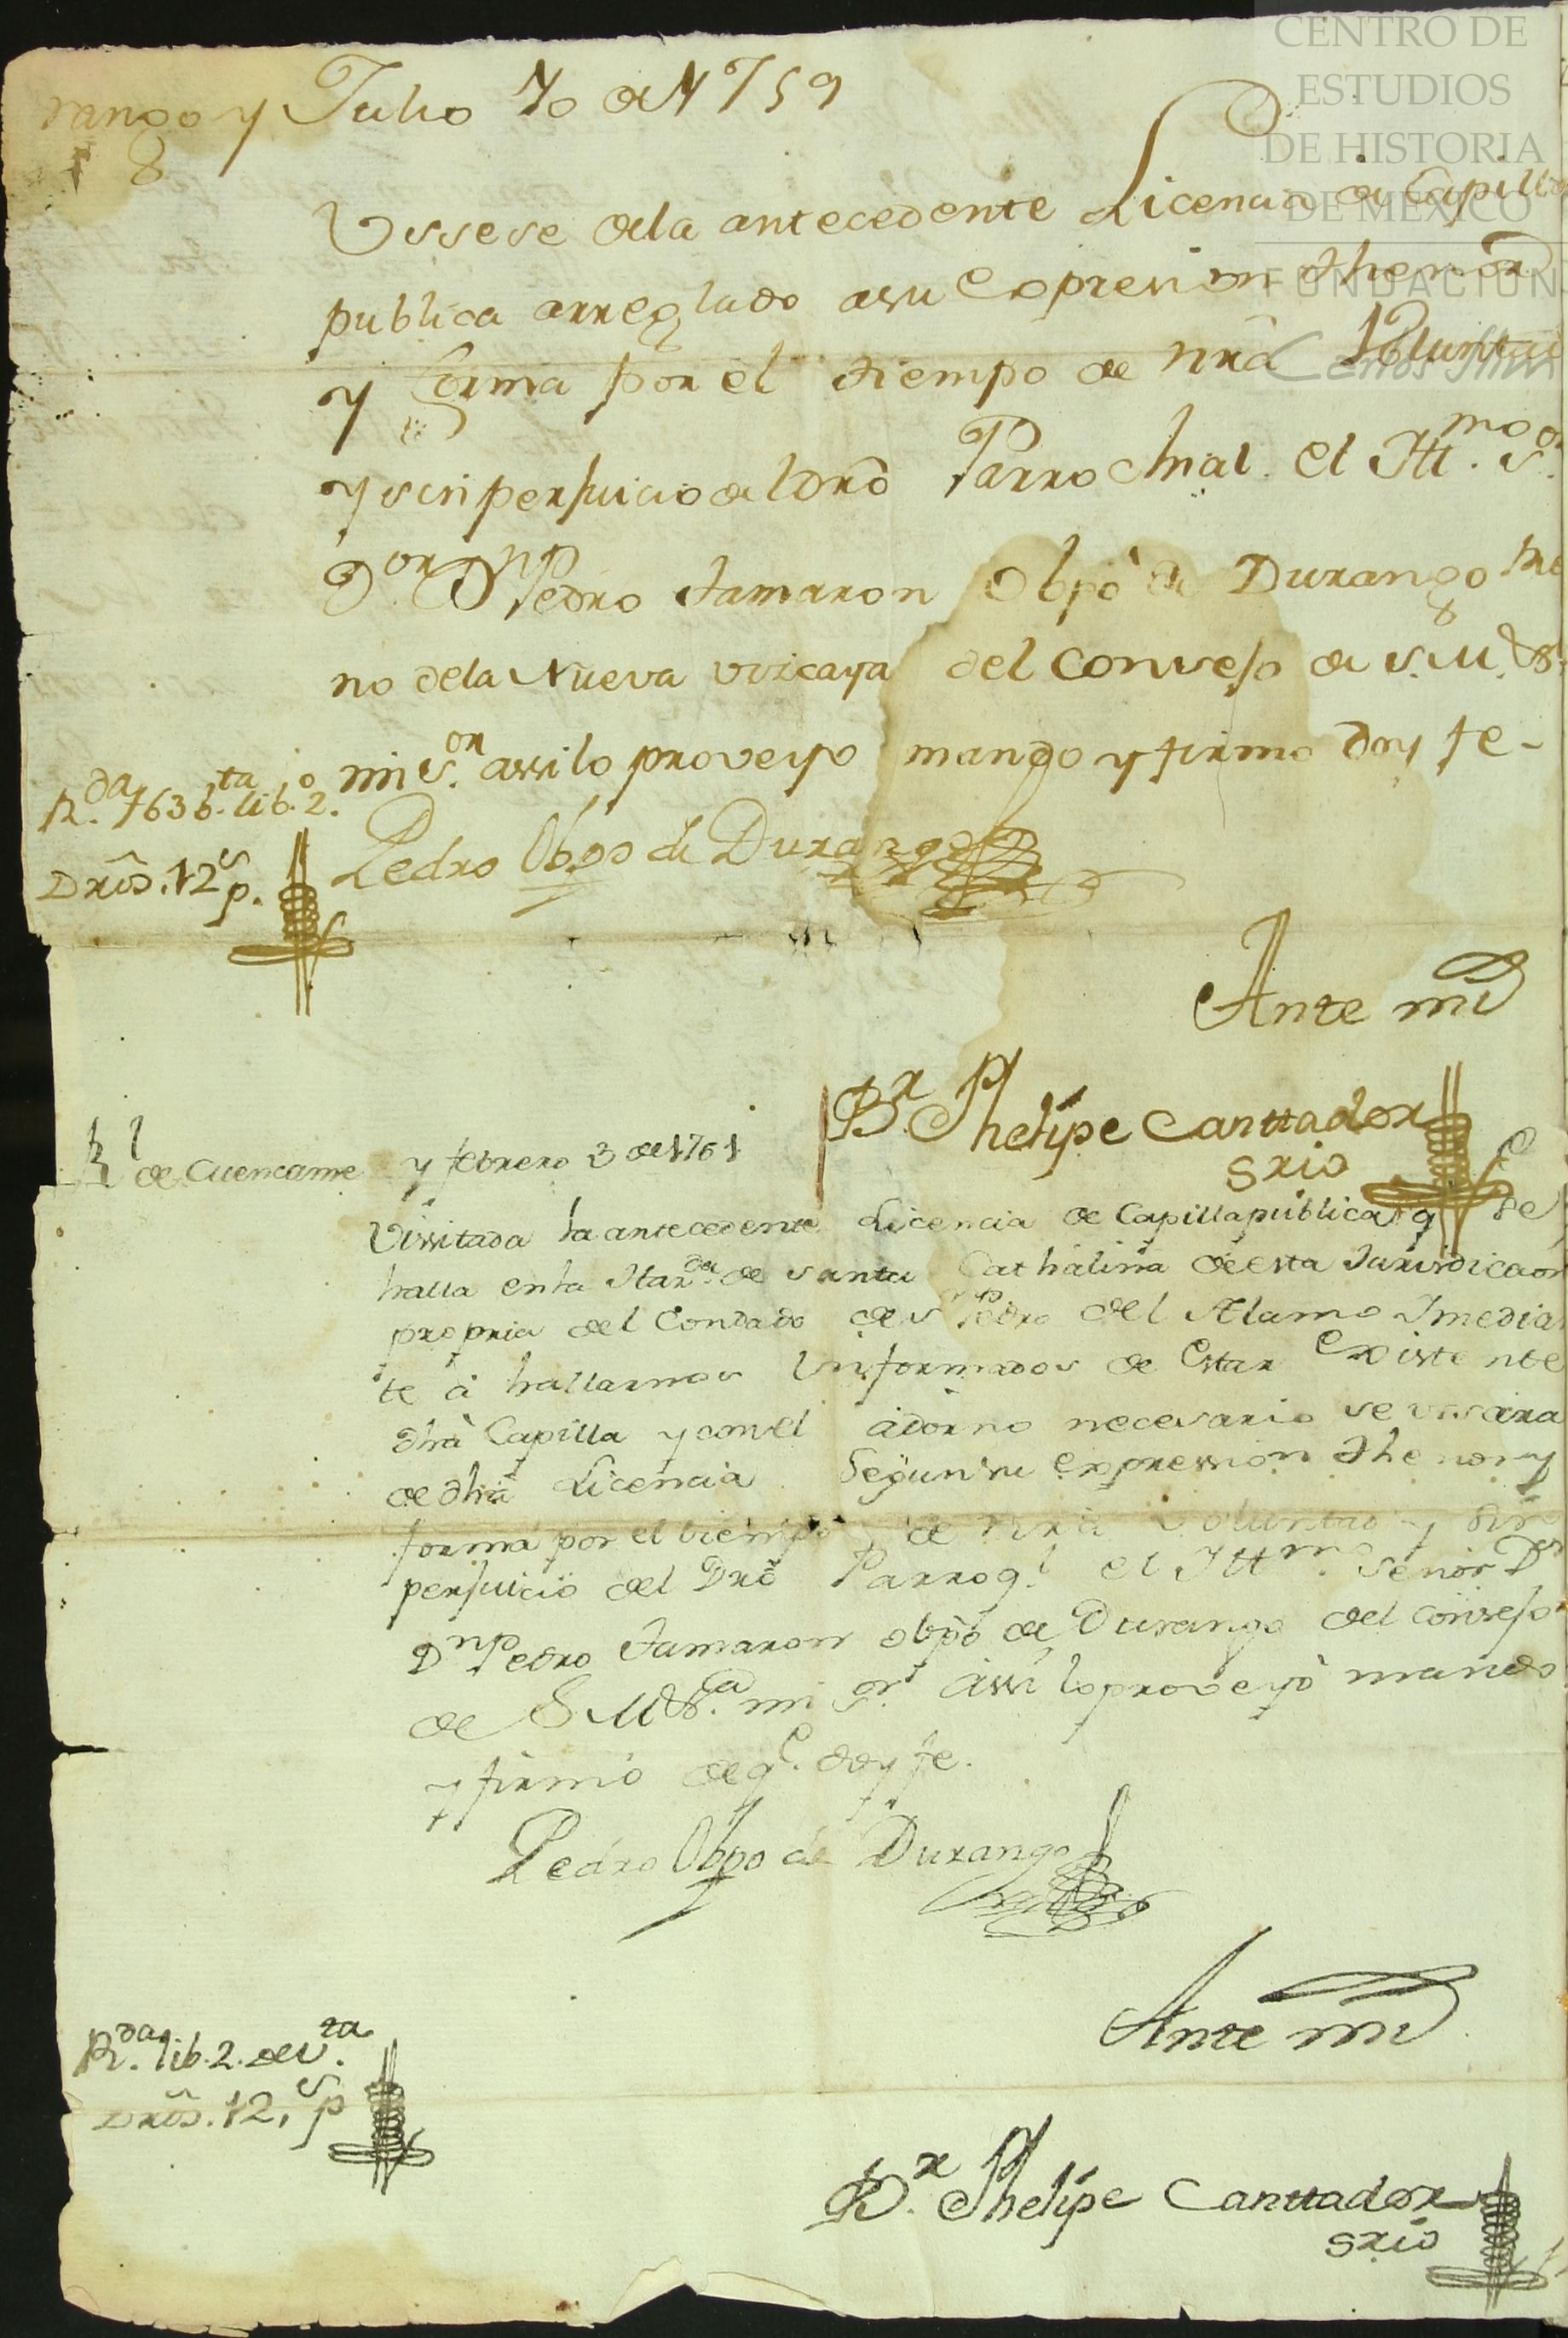 CENTRO DE
ESTUDIOS
DE HISTORIA
DE MEXICO
FUNDACIÓN
rango y Julio 10 de 1759
Ussese de la antecedente Licencia de Capilla
publica arreglado a su expresion thenor
y forma por el tiempo de nrã Voluntad
y sin perjuicio del Drõ Parrochial. el Ill.mo S.or
D.or Dn Pedro Tamaron Obpõ de Durango Rei
no de la Nueva Vizcaya del Consejo de S.M. &
mi S.or assi lo proveyo mando y firmo doy fe-
R.da 163 b.ta lib.o 2.
Drõs. 12 p.s
Pedro Obpo de Durango
Ante mi
Br Phelipe Canttador
Srio
Rl de Cuencame y febrero 3 de 1761
Vissitada la antecedente Licencia de Capilla publica q se
halla en la Haz.da de Santa Cathalina de esta Jurisdicaon
propria del Condado de Sn Pedro del Alamo Imedia
te á hallarnos Informados de Estar Existente
dhã Capilla y con el adorno necesario se ussara
de dhã Licencia Segun su expression thenor y
forma por el tiempo de nrã voluntad y sin
perjuicio del Drõ Parroq.l el Ill.mo Señor D.or
Dn Pedro Tamaron obpõ de Durango del Consejo
de S M &.a mi S.or assi lo proveyó mando
y firmó de q.e doy fe.
Pedro Obpo de Durango
Ante mi
R.da lib. 2. de V.ta
Drõs. 12, p.s
Br Phelipe Canttador
Srio